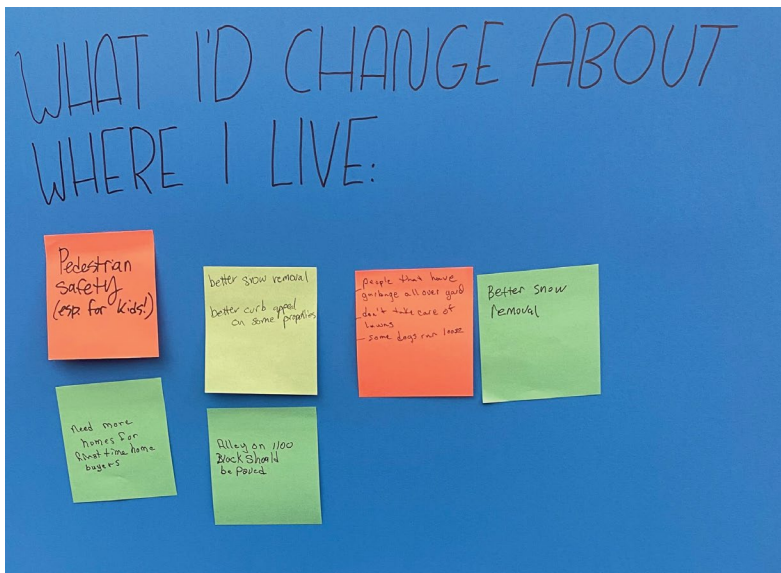 WHAT I'D CHANGE ABOUT
WHERE I LIVE:
Pedestrian
safety
(esp. for kids!)
better snow removal
better curb appeal
on some properties
- people that have
garbage all over yard
- don't take care of
lawns
- some dogs run loose
Better snow
removal
Need more
homes for
first time home
buyers
Alley on 1100
Block Should
be paved